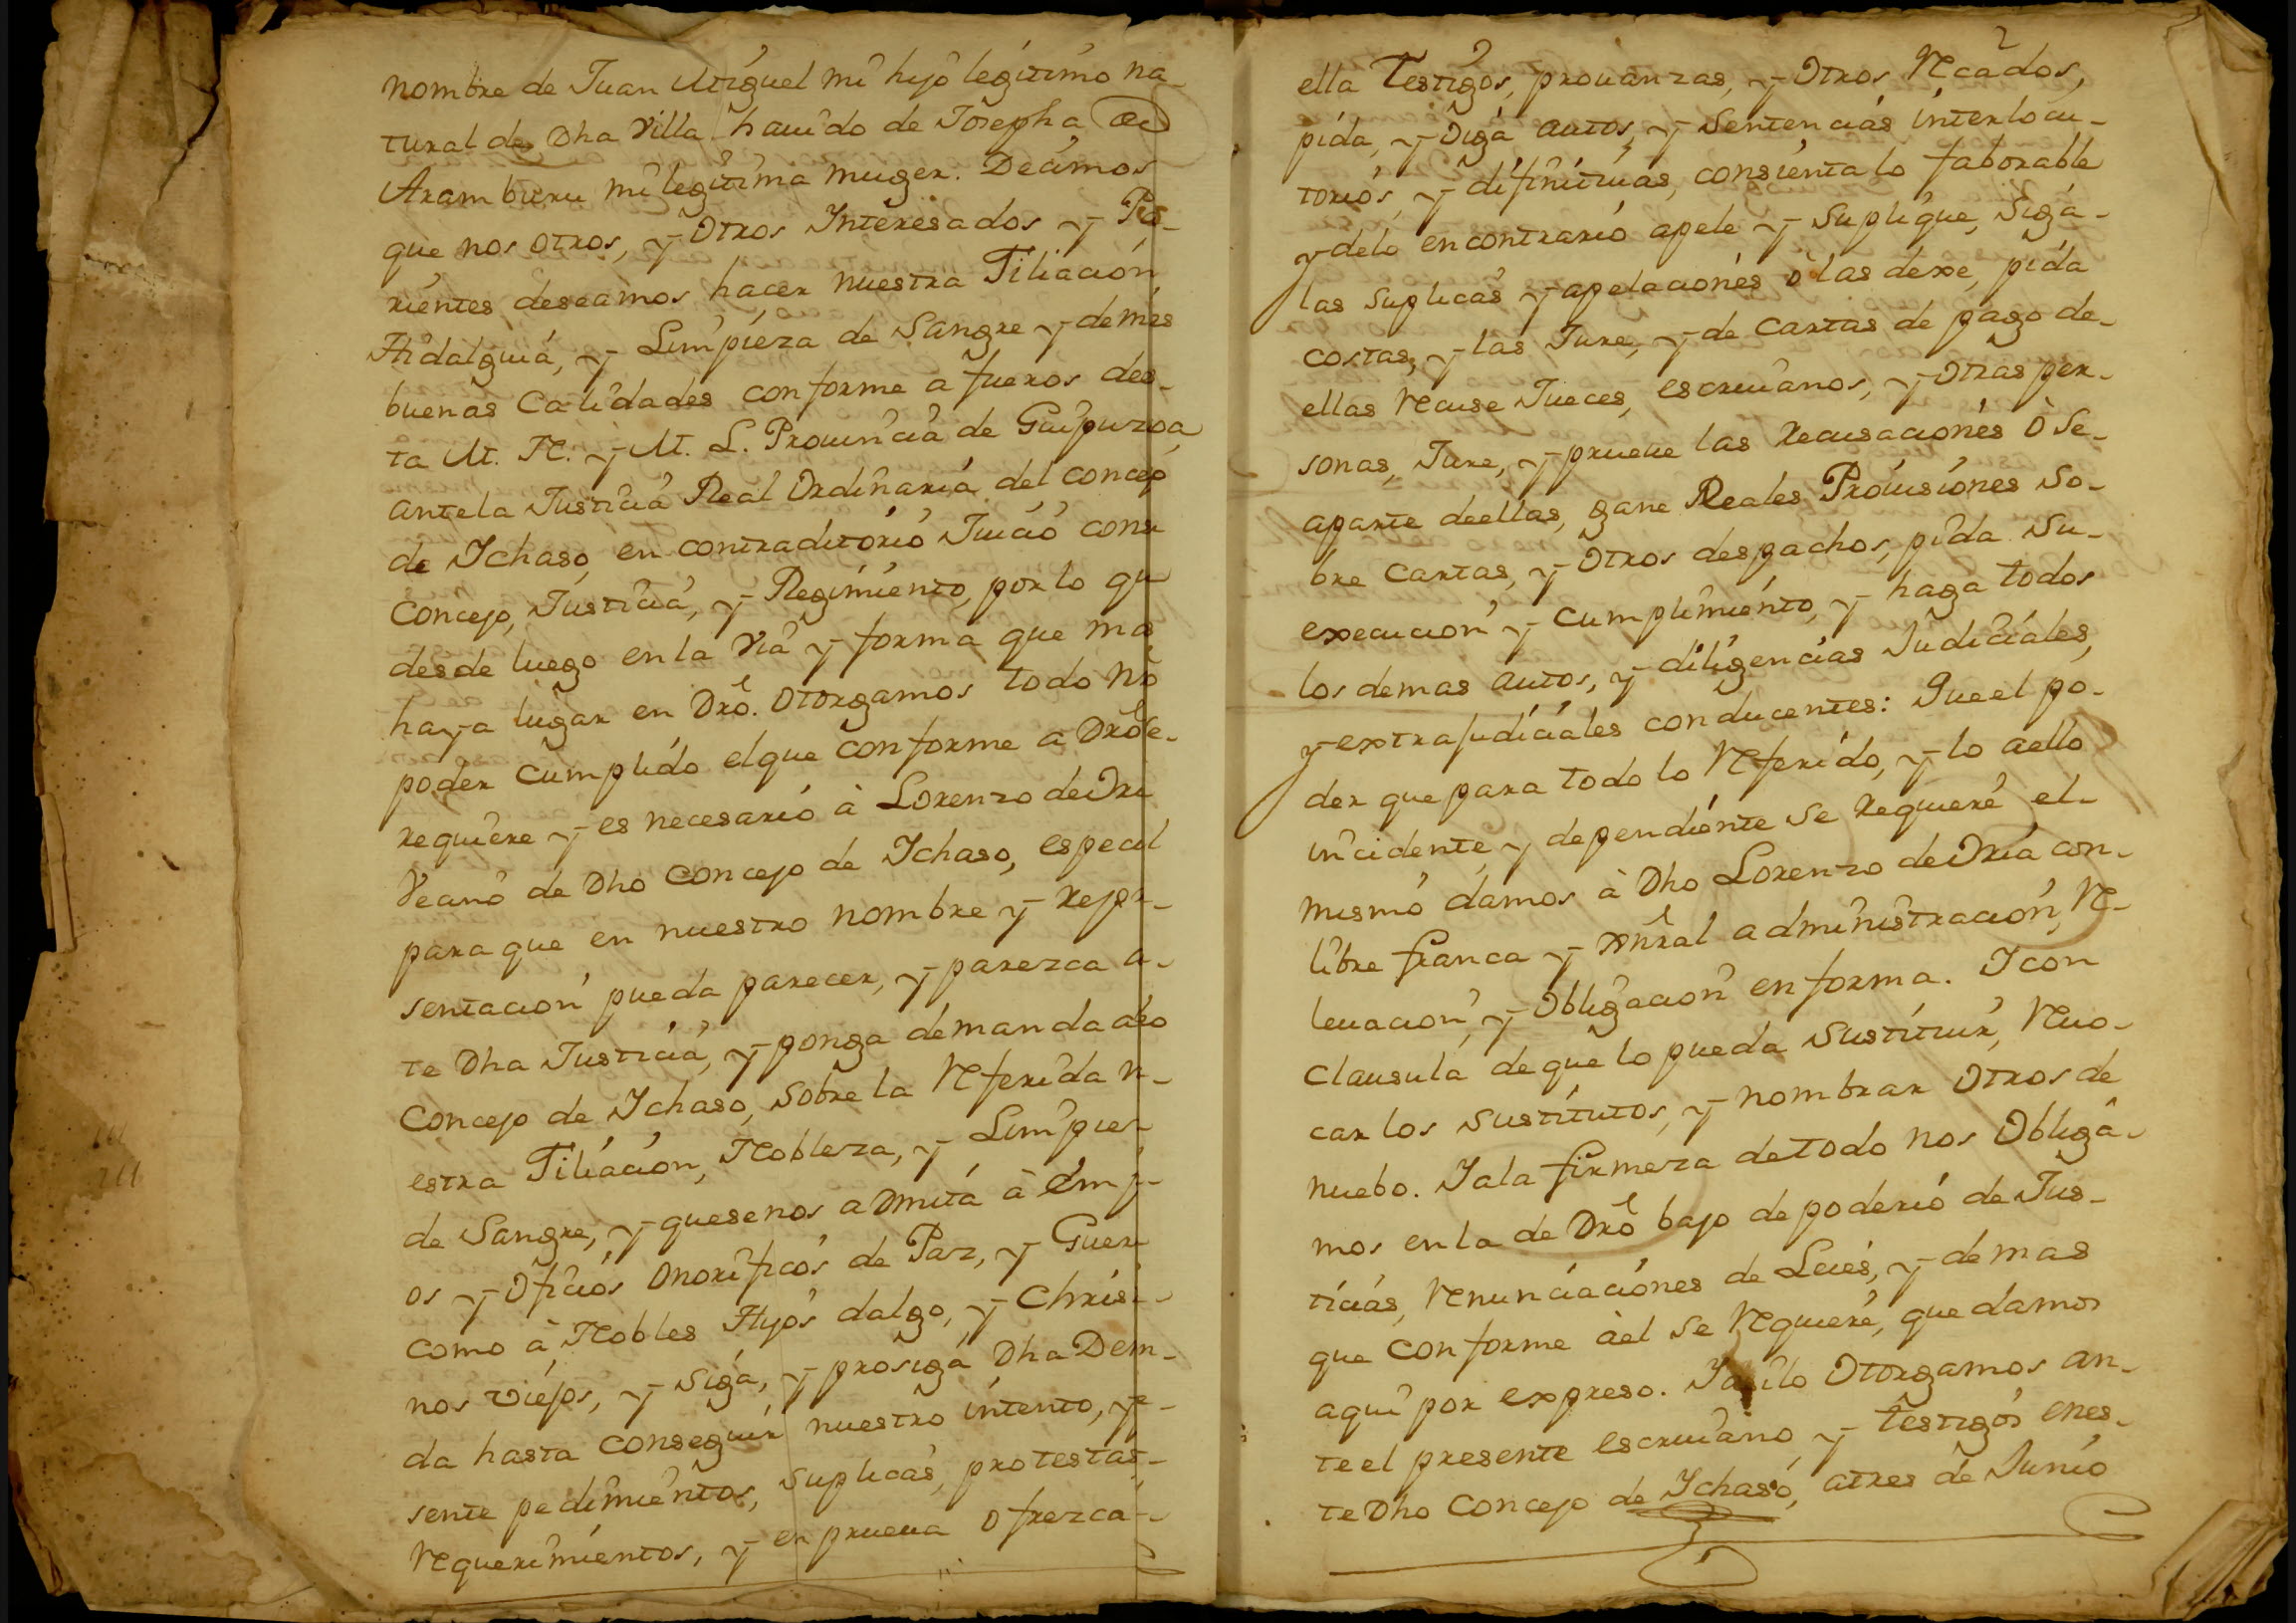 nombre de Juan Miguel mi hijo legitimo na
tural de Dha Villa hauido de Josepha de
Aramburu mi legitima muger. Decimos
que nos otros, y Otros Interesados y Pa-
rientes deseamos hacer nuestra Filiación
Hidalguiá, y Limpieza de Sangre y demas
buenas Calidades conforme a fueros des-
ta M. N. y M. L. Prouincia de Guipuzcoa,
antela Justicia Real Ordinaria del concejo
de Ichaso, en contraditorio Juicio con
Concejo, Justicia, y Regimiento, por lo que
desde luego en la via y forma que mas
haya lugar en Dro. Otorgamos todo nro
poder cumplido elque conforme a Dro se
requiere y es necesario à Lorenzo de Oria
Vecino de Dho Concejo de Ichaso, especial
para que en nuestro nombre y repre-
sentacion pueda parecer, y parezca an-
te Dha Justicia, y ponga demanda al
Concejo de Ichaso, sobre la Referida nu-
estra Filiación, Nobleza, y Limpieza
de Sangre, y quesenos admita à emple-
os y Oficios Onorificos de Paz, y Guerra
como à Nobles Hijos dalgo, y Christia-
nos viejos, y siga, y prosiga Dha Deman-
da hasta conseguir nuestro intento, pre-
sente pedimientos, suplicas, protestas,
Requerimientos, y en prueua ofrezca
2
ella Testigos, prouanzas, y Otros Recados,
pida, y Oiga autos, y sentencias interlocu-
torios, y difinitiuas, consienta lo faborable
y delo en contrario apele y suplique, siga
las suplicas y apelaciones ò las dexe, pida
costas, y las Jure, y de cartas de pago de
ellas Recuse Jueces, escriuanos, y Otras per-
sonas, Jure, y prueue las Recusaciones ò se
aparte deellas, gane Reales Prouisiones So-
bre cartas, y Otros despachos, pida su
execucion y cumplimiento, y haga todos
los demas autos, y diligencias Judiciales,
y extrajudiciales conducentes: Que el po-
der que para todo lo Referido, y lo aello
incidente, y dependiente se requiere el
mismo damos à Dho Lorenzo de Oria con
libre franca y xnral administracion, Re-
leuacion, y Obligacion en forma. I con
clausula de que lo pueda sustituir, Reuo-
car los sustitutos, y nombrar Otros de
nuebo. I a la firmeza de todo nos Obliga-
mos en la de Dro bajo de poderio de Jus-
ticias, Renunciaciones de Leies, y demas
que conforme àel se Requiere, que damos
aqui por expreso. I asilo Otorgamos an-
te el presente escriuano, y testigos enes-
te Dho Concejo de Ichaso, atres de Junio